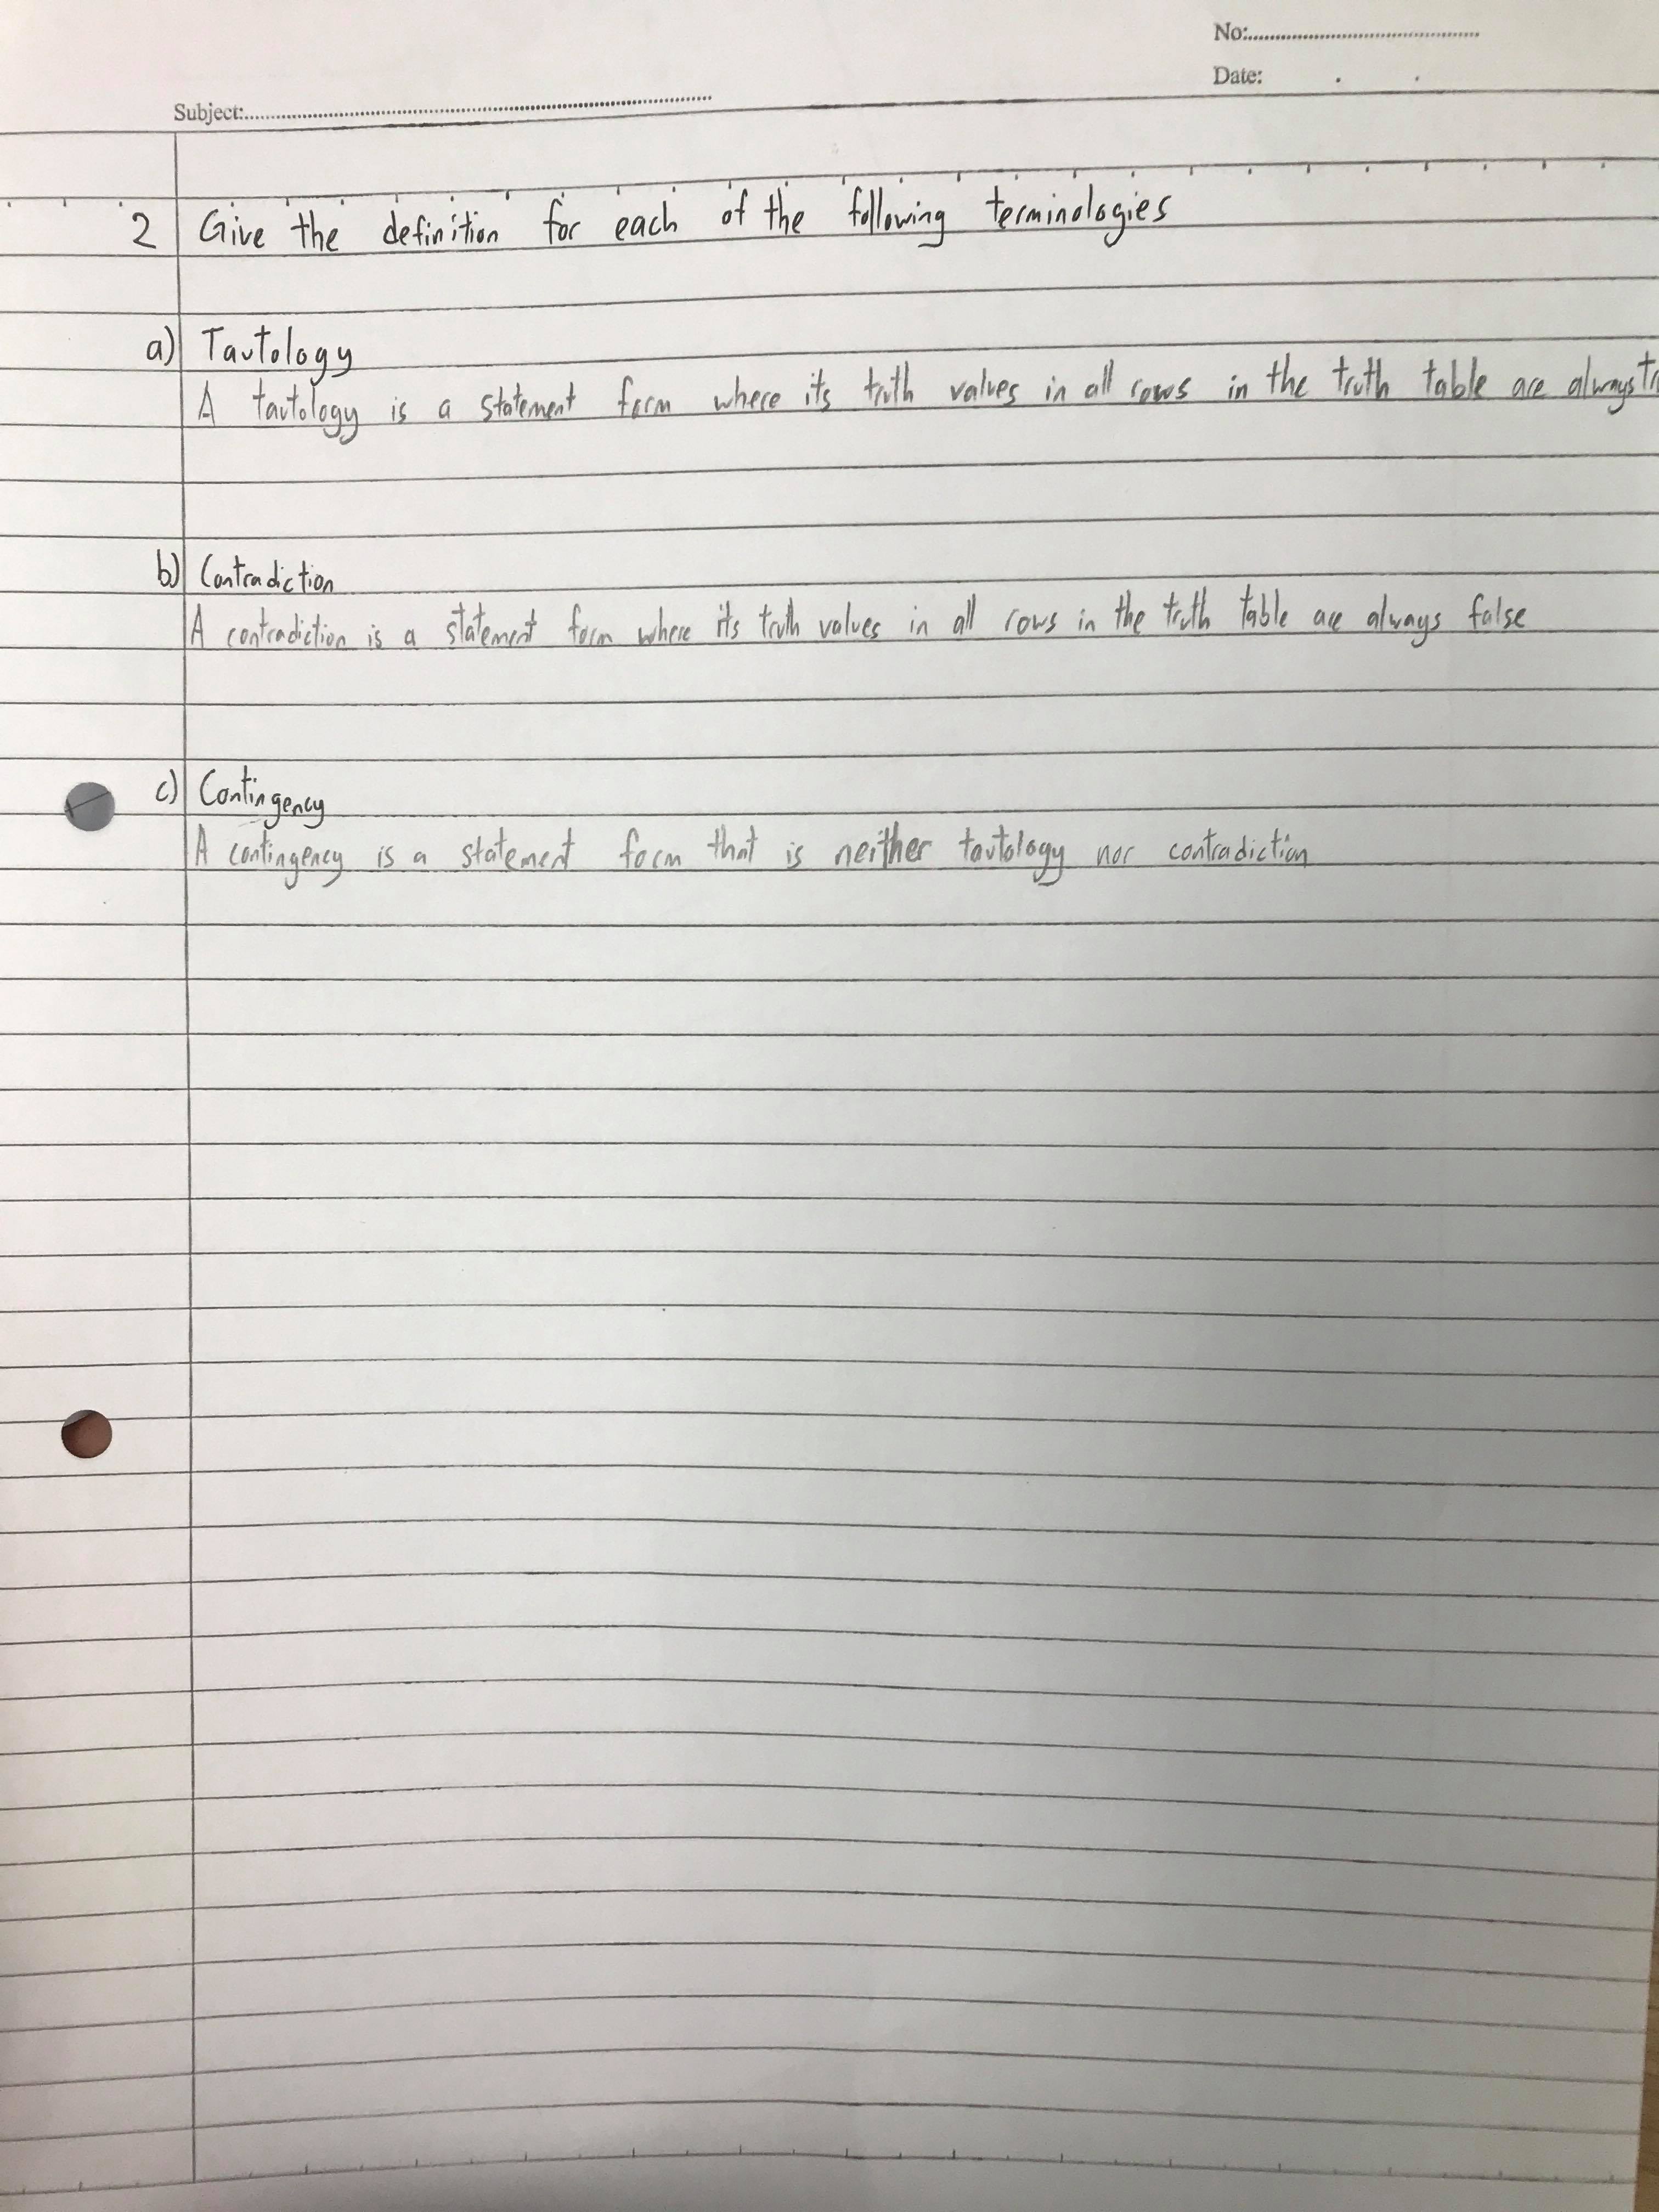 No:
Date:
Subject:
2 Give the definition for each of the following terminologies
a) Tautology
A tautology is a statement form where its truth values in all rows in the truth table are always
b) Contradiction
A contradiction is a statement form where its truth values in all rows in the truth table are always false
c) Contingency
A contingency is a statement form that is neither tautology nor contradiction